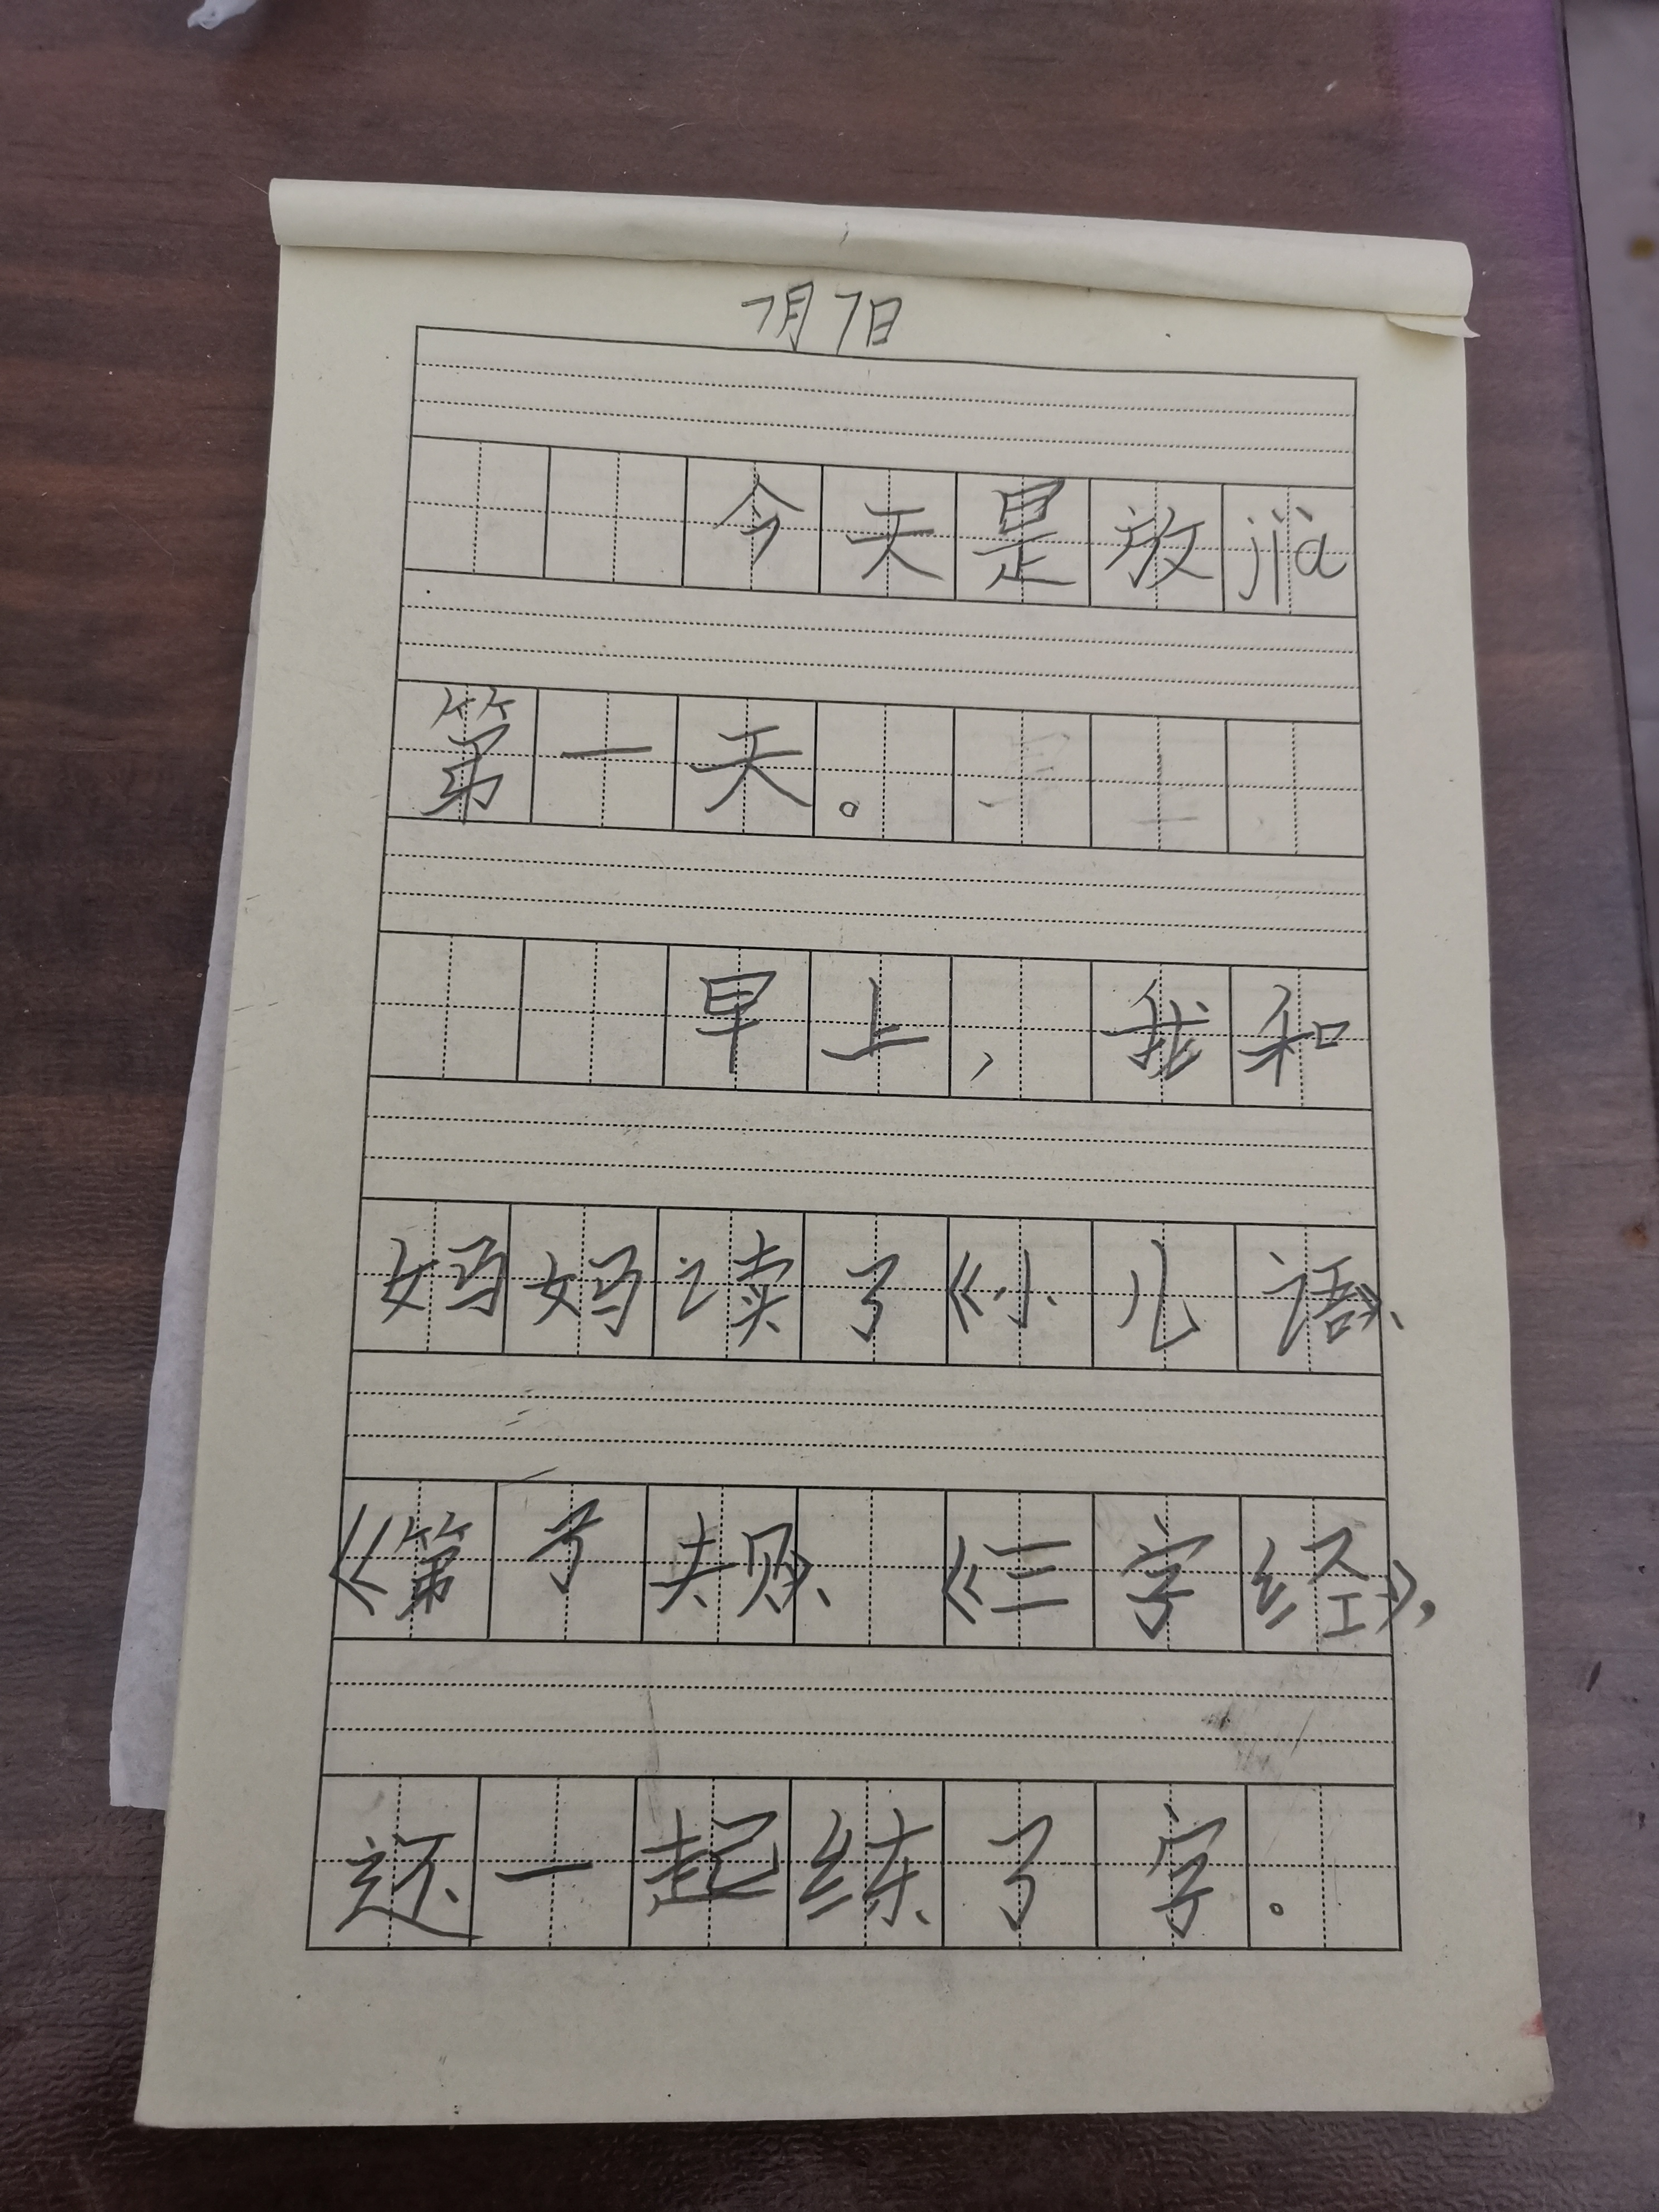 7月7日
今天是放jià
第一天。
早上，我和
妈妈读了《小儿语》、
《第子规》、《三字经》，
还一起练了字。